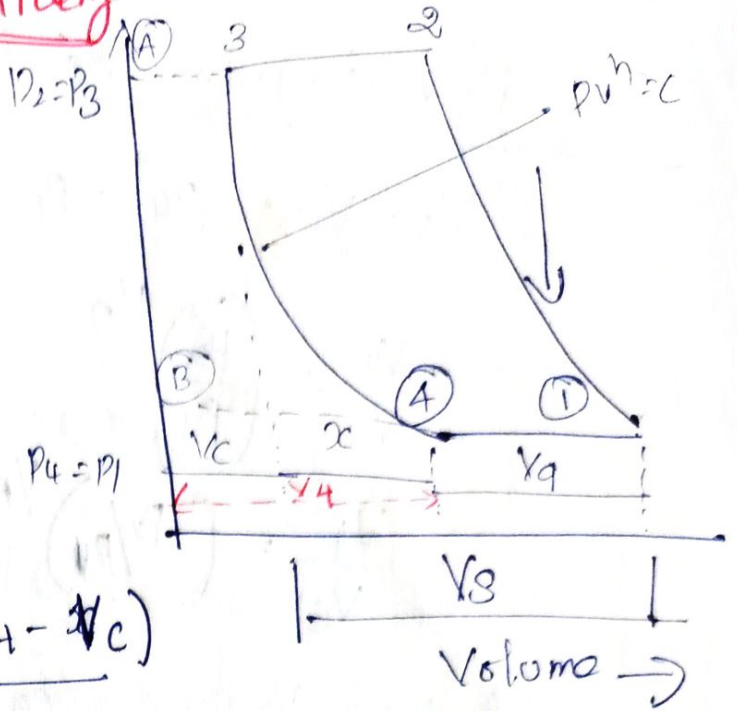 A 3 2
P2=P3
PVⁿ=C
B
4 1
Vc x Va
P4=P1
V4
Vs
- Vc)
Volume →